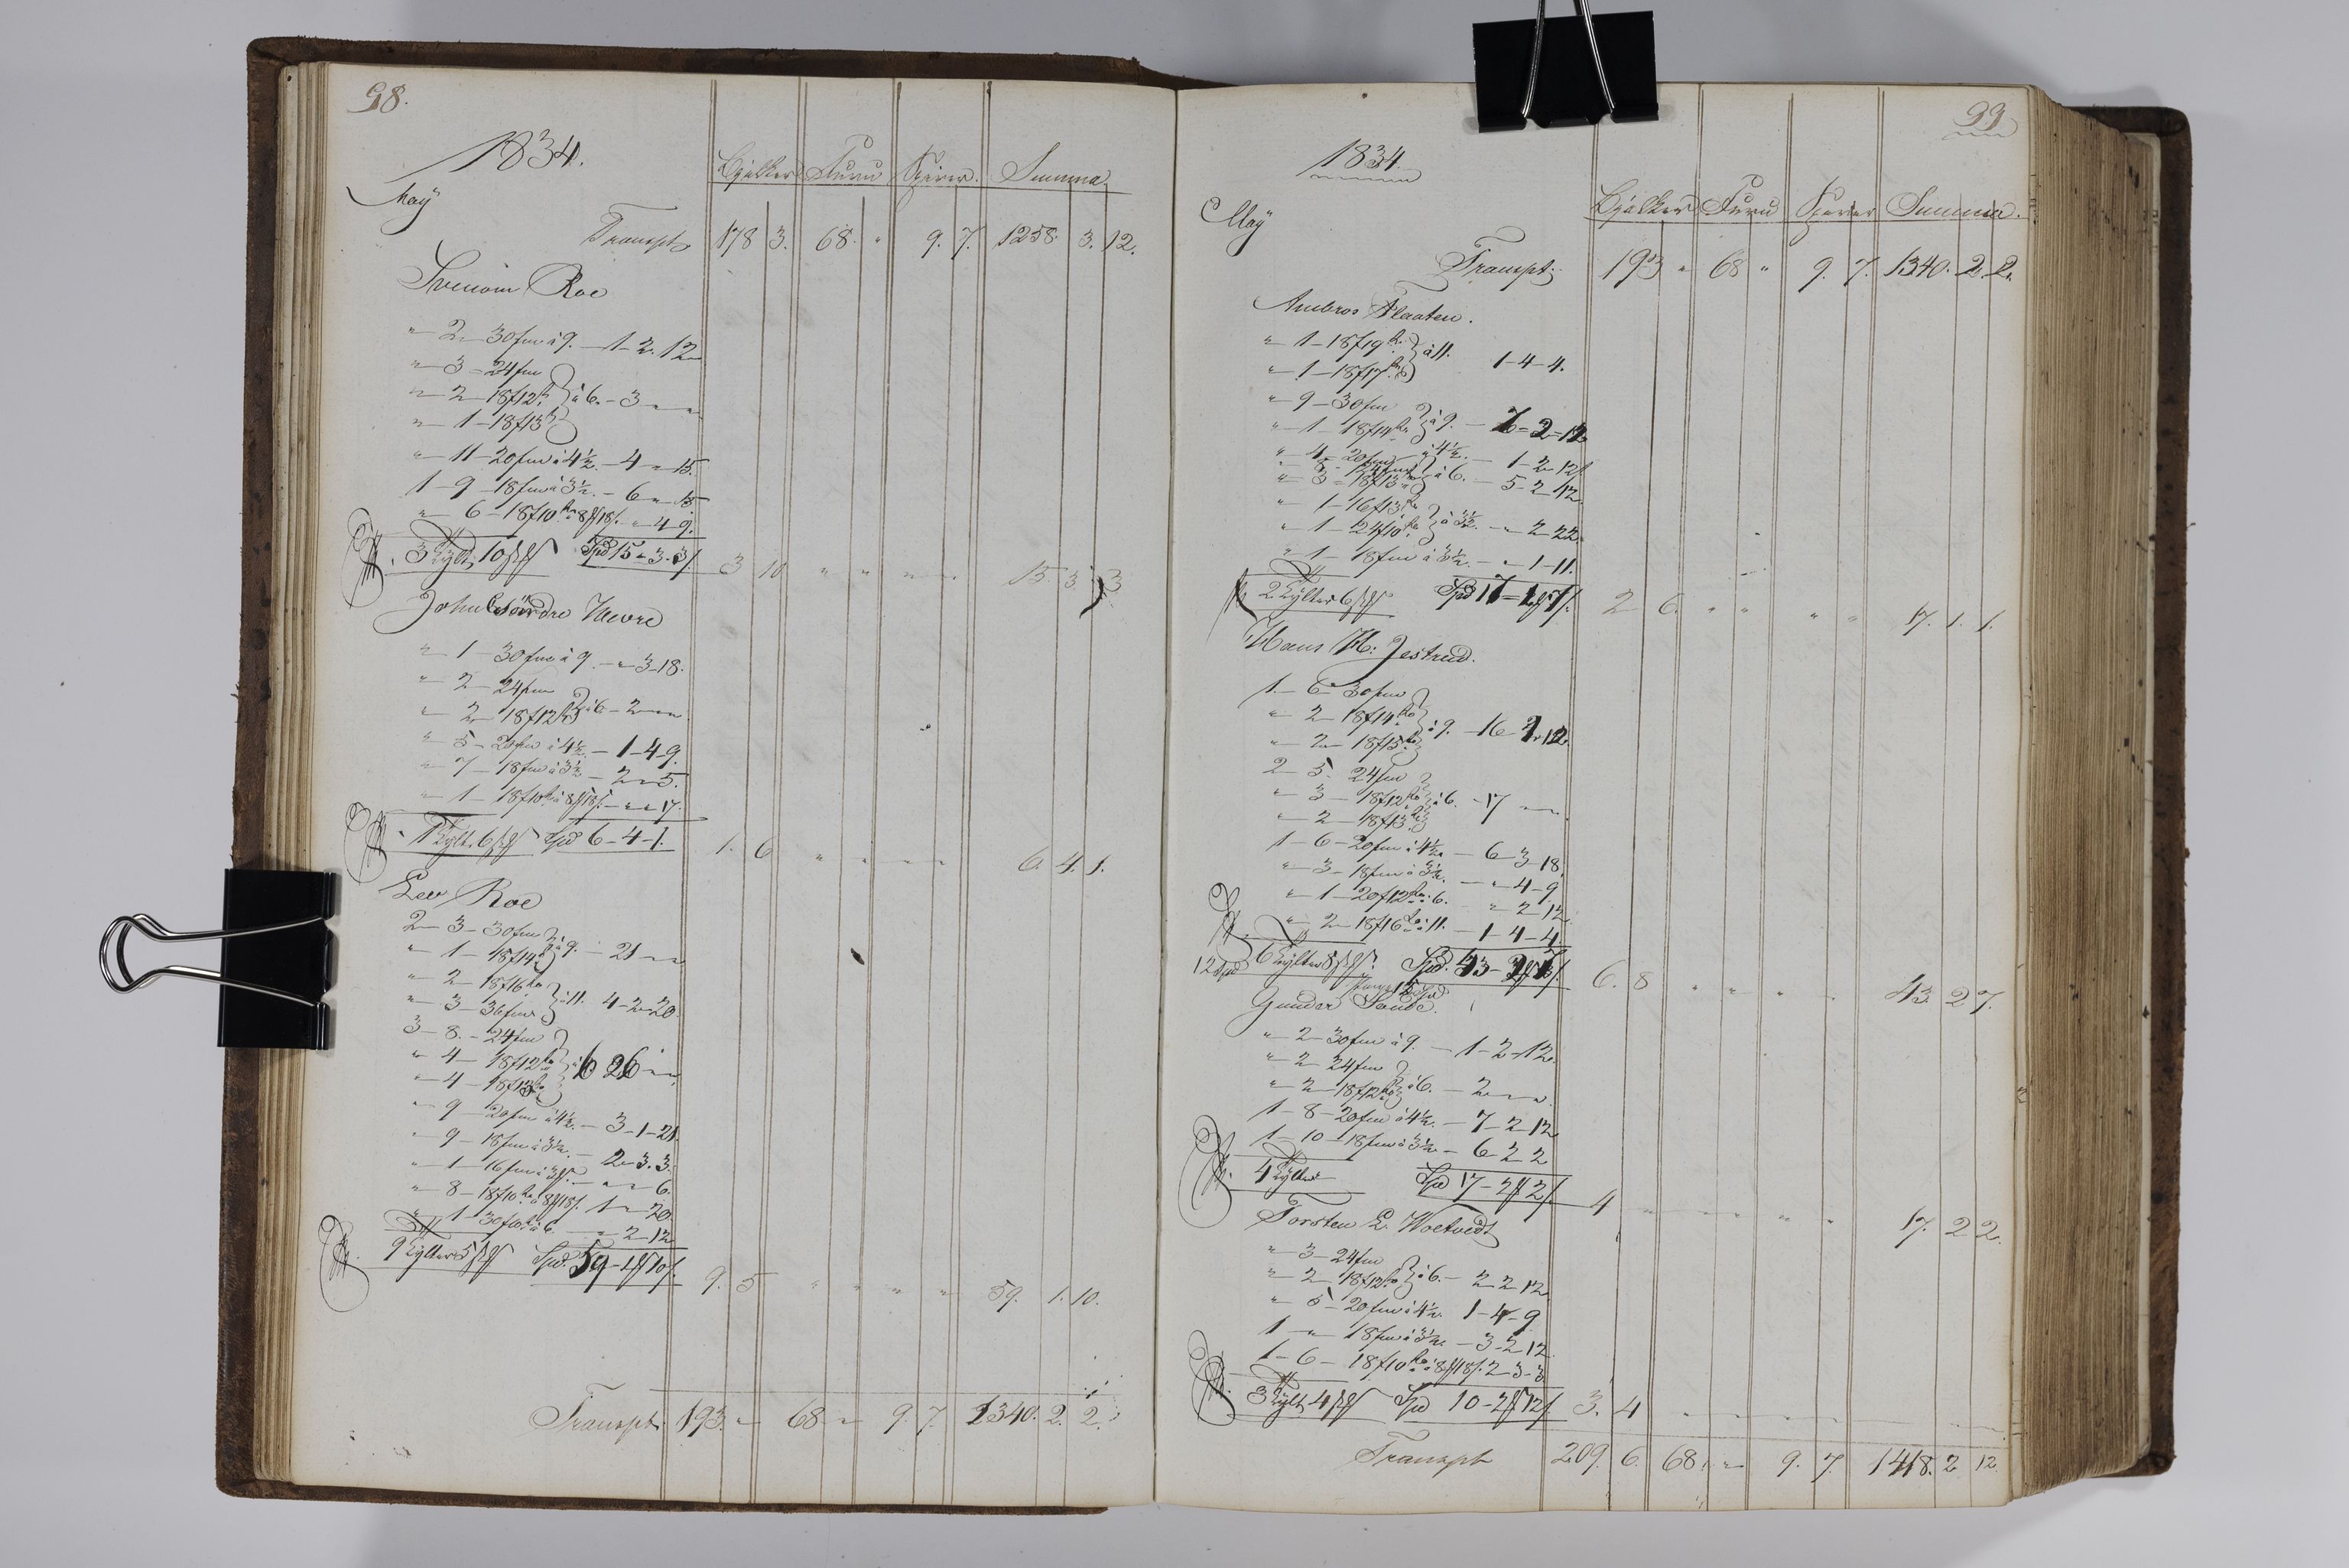 98.
1834.
Bjelker Furu Sperer. Summa.
May
Transpt 178 3. 68. " 9. 7. 1258. 3. 12.
Roe
" 2 – 30fm à 9. – 1 – 2. 12
" 3 – 24fm
" 2 – 18f12 à 6. – 3 " "
" 1 – 18f13
" 11 – 20fm à 4½. – 4 " 15.
1 – 9 – 18fm à 3½. – 6 " 15.
" 6 – 18f10 8 18 " 4 9.
3 Tylt 10 Spd 15 " 3. 3
3 10 " " " " 15. 3. 3
John Søndre Hevre
" 1 – 30fm à 9. – " 3 – 18.
" 2 – 24fm
" 2 – 18f12 à 6 – 2 " "
" 5 – 20fm à 4½. – 1 – 4 – 9.
" 7 – 18fm à 3½ – 2 " 5.
" 1 – 18f10 à 8 18 – " " 17.
1 Tylt. 6 Spd 6 – 4 – 1.
1. 6 " " " " 6. 4. 1.
Lev Roe
2 – 3 – 30fm
" 1 – 18f14 à 9. – 21 " "
" 2 – 18f16
" 3 – 36fm à 11. 4 – 2 – 20.
3 – 8. – 24fm
" 4 – 18f12 à 6 26 " "
" 4 – 18f13
" 9 – 20fm à 4½. – 3 – 1 – 21.
" 9 – 18fm à 3½. – 2 – 3. 3.
" 1 – 16fm à 3 – " " 6.
" 8 – 18f10 à 8 18 1 " 20.
" 1 – 30f10 à 6. " 2 – 12
9 Tylter 5 Spd. 59 – 1 10
9. 5 " " " " 59. 1. 10.
Transpt. 193. " 68 " 9. 7. 1340. 2. 2.
99
1834.
Bjelker Furu Sperer Summa.
May
Transpt. 193 " 68 " 9. 7. 1340. 2. 2.
Ambros Flaaten.
" 1 – 18f19 à 11. 1 – 4 – 4.
" 1 – 18f17
" 9 – 30fm
" 1 – 18f14 à 9. – 7 – 2 – 12
" 4 – 20fm à 4½. – 1 – 2 – 12
" 8 – 24fm
" 3 – 18f13 à 6. – 5 – 2 – 12.
" 1 – 16f13
" 1 – 24f10 à 3½. – " 2 22.
" 1 – 18fm à 3½. – " 1 – 11.
2 Tylter 6 Spd 17 – 1 1
2 6. " " " " 17. 1. 1.
Hans H: Jestrud.
1. – 6 – 30fm
" 2 – 18f14 à 9. – 16 – 12.
" 2 – 18f15
2 – 5. 24fm
" 3 – 18f12 à 6. – 17 " "
" 2 – 18f13
1 – 6 – 20fm à 4½ – 6 – 3 – 18.
" 3 – 18fm à 3½. – " 4 – 9.
" 1 – 20f12 à 6. " 2 – 12
" 2 – 18f16 à 11. – 1 – 4 – 4
12 Spd 6 Tylter 8 Spd. 43 – 2 7
6. 8 " " " " 43 2 7.
Gunder Sande.
" 2 – 30fm à 9. – 1 – 2 – 12.
" 2 – 24fm
" 2 – 18f12 à 6. – 2 " "
1 – 8 – 20fm à 4½. – 7 – 2 – 12
1 – 10 – 18fm à 3½ – 6 2 2
4 Tylter Spd 17 – 2 2
4 " " " " " 17. 2 2.
Torsten L. Woetvedt
" 3 – 24fm
" 2 – 18f12 à 6. – 2 2 12
" 5 – 20fm à 4½. 1 – 4 – 9
1 " – 18fm à 3½ – 3 – 2 12
1 – 6 – 18f10 à 8 18 2 – 3 – 3
3 Tylt 4 Spd 10 – 2 12
3. 4
Transpt 209. 6. 68. " 9. 7. 1418. 2 12